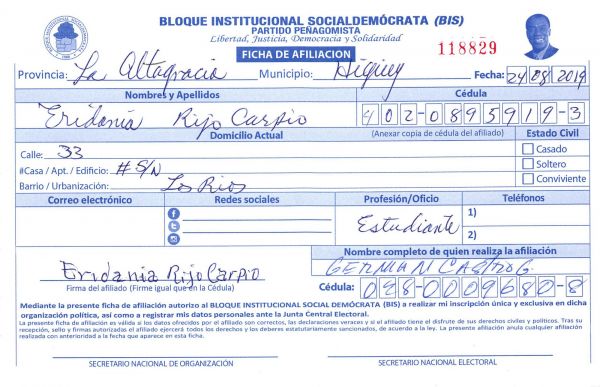 BLOQUE INSTITUCIONAL SOCIALDEMÓCRATA (BIS)
PARTIDO PEÑAGOMISTA
Libertad, Justicia, Democracia y Solidaridad
FICHA DE AFILIACION
118829
Provincia: La Altagracia Municipio: Higüey Fecha: 24/08/2019
Nombres y Apellidos Cédula
Eridania Rijo Carpio 402-0895919-3
Domicilio Actual (Anexar copia de cédula del afiliado) Estado Civil
Calle: 33 Casado
#Casa / Apt. / Edificio: # S/N Soltero
Barrio / Urbanización: Los Rios Conviviente
Correo electrónico Redes sociales Profesión/Oficio Teléfonos
Estudiante 1)
2)
Nombre completo de quien realiza la afiliación
Eridania Rijo Carpio GERMAN CASTRO G.
Firma del afiliado (Firme igual que en la Cédula) Cédula: 028-0009682-8
Mediante la presente ficha de afiliación autorizo al BLOQUE INSTITUCIONAL SOCIAL DEMÓCRATA (BIS) a realizar mi inscripción única y exclusiva en dicha
organización política, así como a registrar mis datos personales ante la Junta Central Electoral.
La presente ficha de afiliación es válida si los datos ofrecidos por el afiliado son correctos, las declaraciones veraces y si el afiliado tiene el disfrute de sus derechos civiles y políticos. Tras su
recepción, sello y firmas autorizadas el afiliado ejercerá todos los derechos y los deberes estatutariamente sancionados, de acuerdo a la ley. La presente afiliación anula cualquier afiliación
realizada con anterioridad a la fecha que aparece en esta ficha.
SECRETARIO NACIONAL DE ORGANIZACIÓN SECRETARIO NACIONAL ELECTORAL